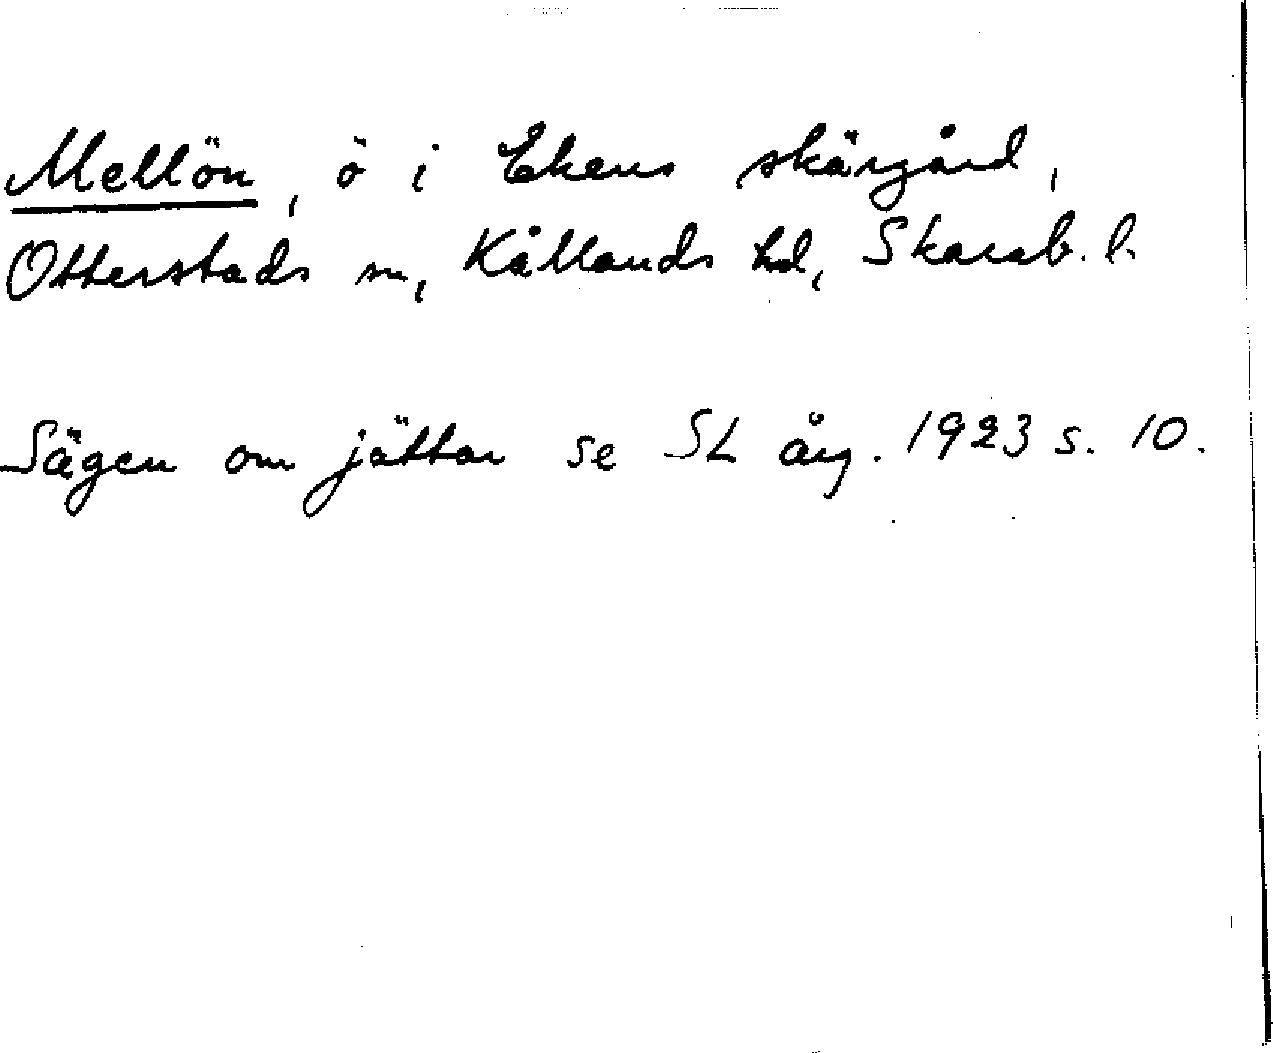 Mellön, ö i Ekens skärgård,
Otterstads sn, Kållands hd, Skarab. l.
Sägen om jättar se SL årg. 1923 s. 10.